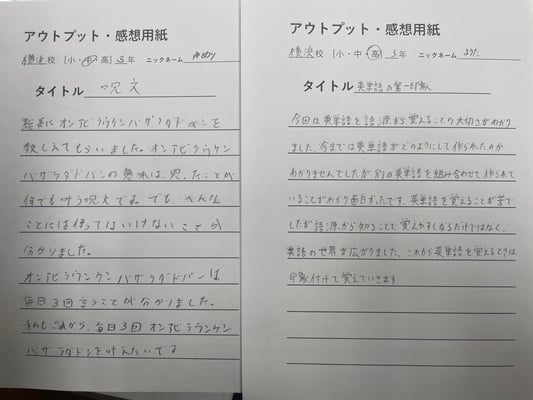 アウトプット・感想用紙
横浜校 [小・中・高] 3年 ニックネーム ゆめり
タイトル 呪文
オンアビラウンケンバザラダドバンを
教しえてもらいました。オンアビラウンケン
バザラダドバンの意味は、思ったことが
何でも叶う呪文です。でも、へんな
ことには使ってはいけないことが
分かりました。
オンアビラウンケンバザラダドバンは
毎日3回言うことが分かりました。
私もこれから、毎日3回オンアビラウンケン
バザラダドンを叶えたいです
アウトプット・感想用紙
横浜校 [小・中・高] 3年 ニックネーム
タイトル 英単語の第一印象
今回は英単語を語源から覚えることの大切さがわかり
ました。今までは英単語がどのようにして作られたのか
わかりませんでしたが別の英単語を組み合わせて作られて
いることがわかり面白かったです。英単語を覚えることが苦で
したが語源から知ることで覚えやすくなるだけではなく、
英語の世界が広がりました。これから英単語を覚えるときは
印象付けて覚えていきます